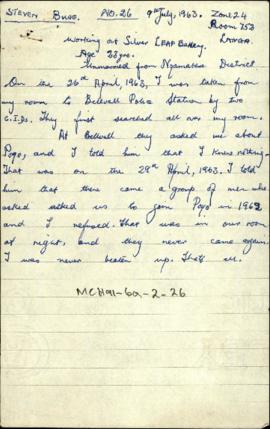 STEVEN Buso. NO.26 9th July, 1963. Zone 24
Room 253
LANGA
Working at Silver LEAF Bakery.
Age 23yrs.
Unmarried from Nqamakwe District
On the 26th April, 1963, I was taken
from my room to Bellville Police Station by two
C.I.Ds. They first searched all over my room.
At Bellville they asked me about
Poqo, and I told him that I knew nothing.
That was on the 29th April, 1963. I told
him that there came a group of men who
asked asked us to join Poqo in 1962
and I refused. That was in our room
at night, and they never came again.
I was never beaten up. That's all.
MCH91-6a-2-26